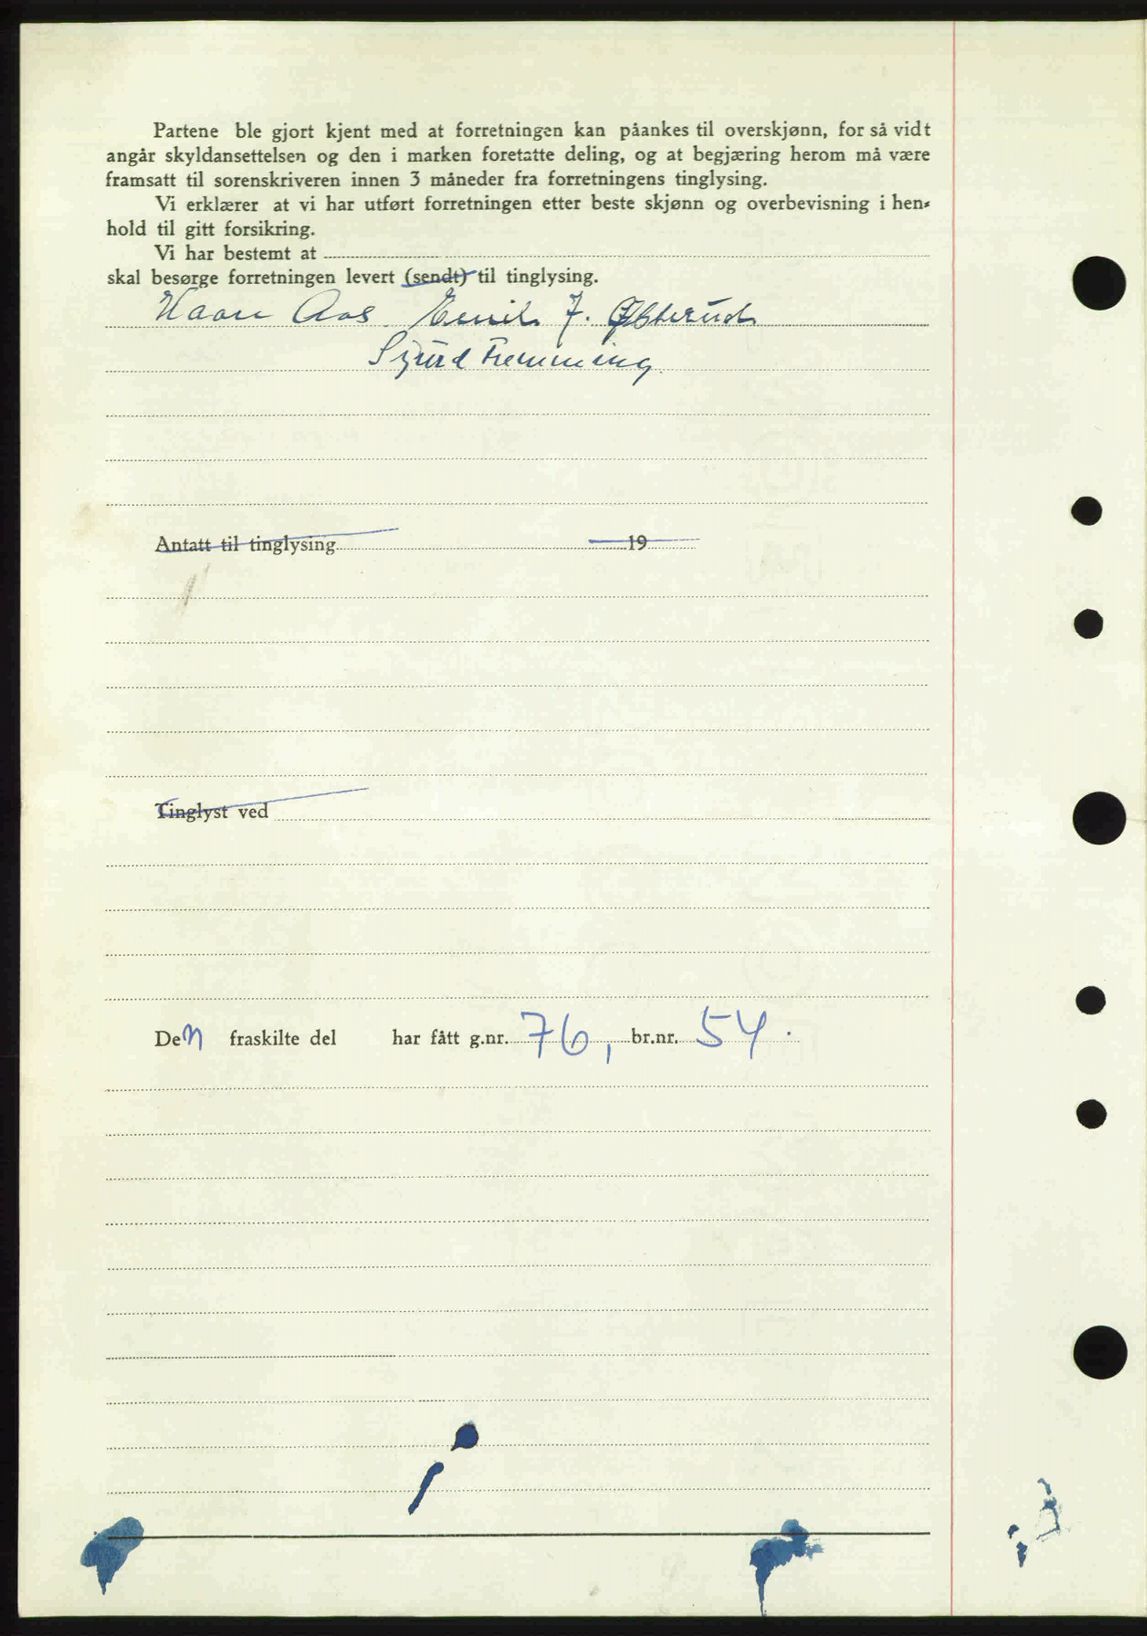 Partene ble gjort kjent med at forretningen kan påankes til overskjønn, for så vidt
angår skyldansettelsen og den i marken foretatte deling, og at begjæring herom må være
framsatt til sorenskriveren innen 3 måneder fra forretningens tinglysing.
Vi erklærer at vi har utført forretningen etter beste skjønn og overbevisning i hen-
hold til gitt forsikring.
Vi har bestemt at
skal besørge forretningen levert (sendt) til tinglysing.
Haavr Aas Emil J. Østerud
Sigurd Fremming
Antatt til tinglysing 19
Tinglyst ved
Den fraskilte del har fått g.nr. 76, br.nr. 54.